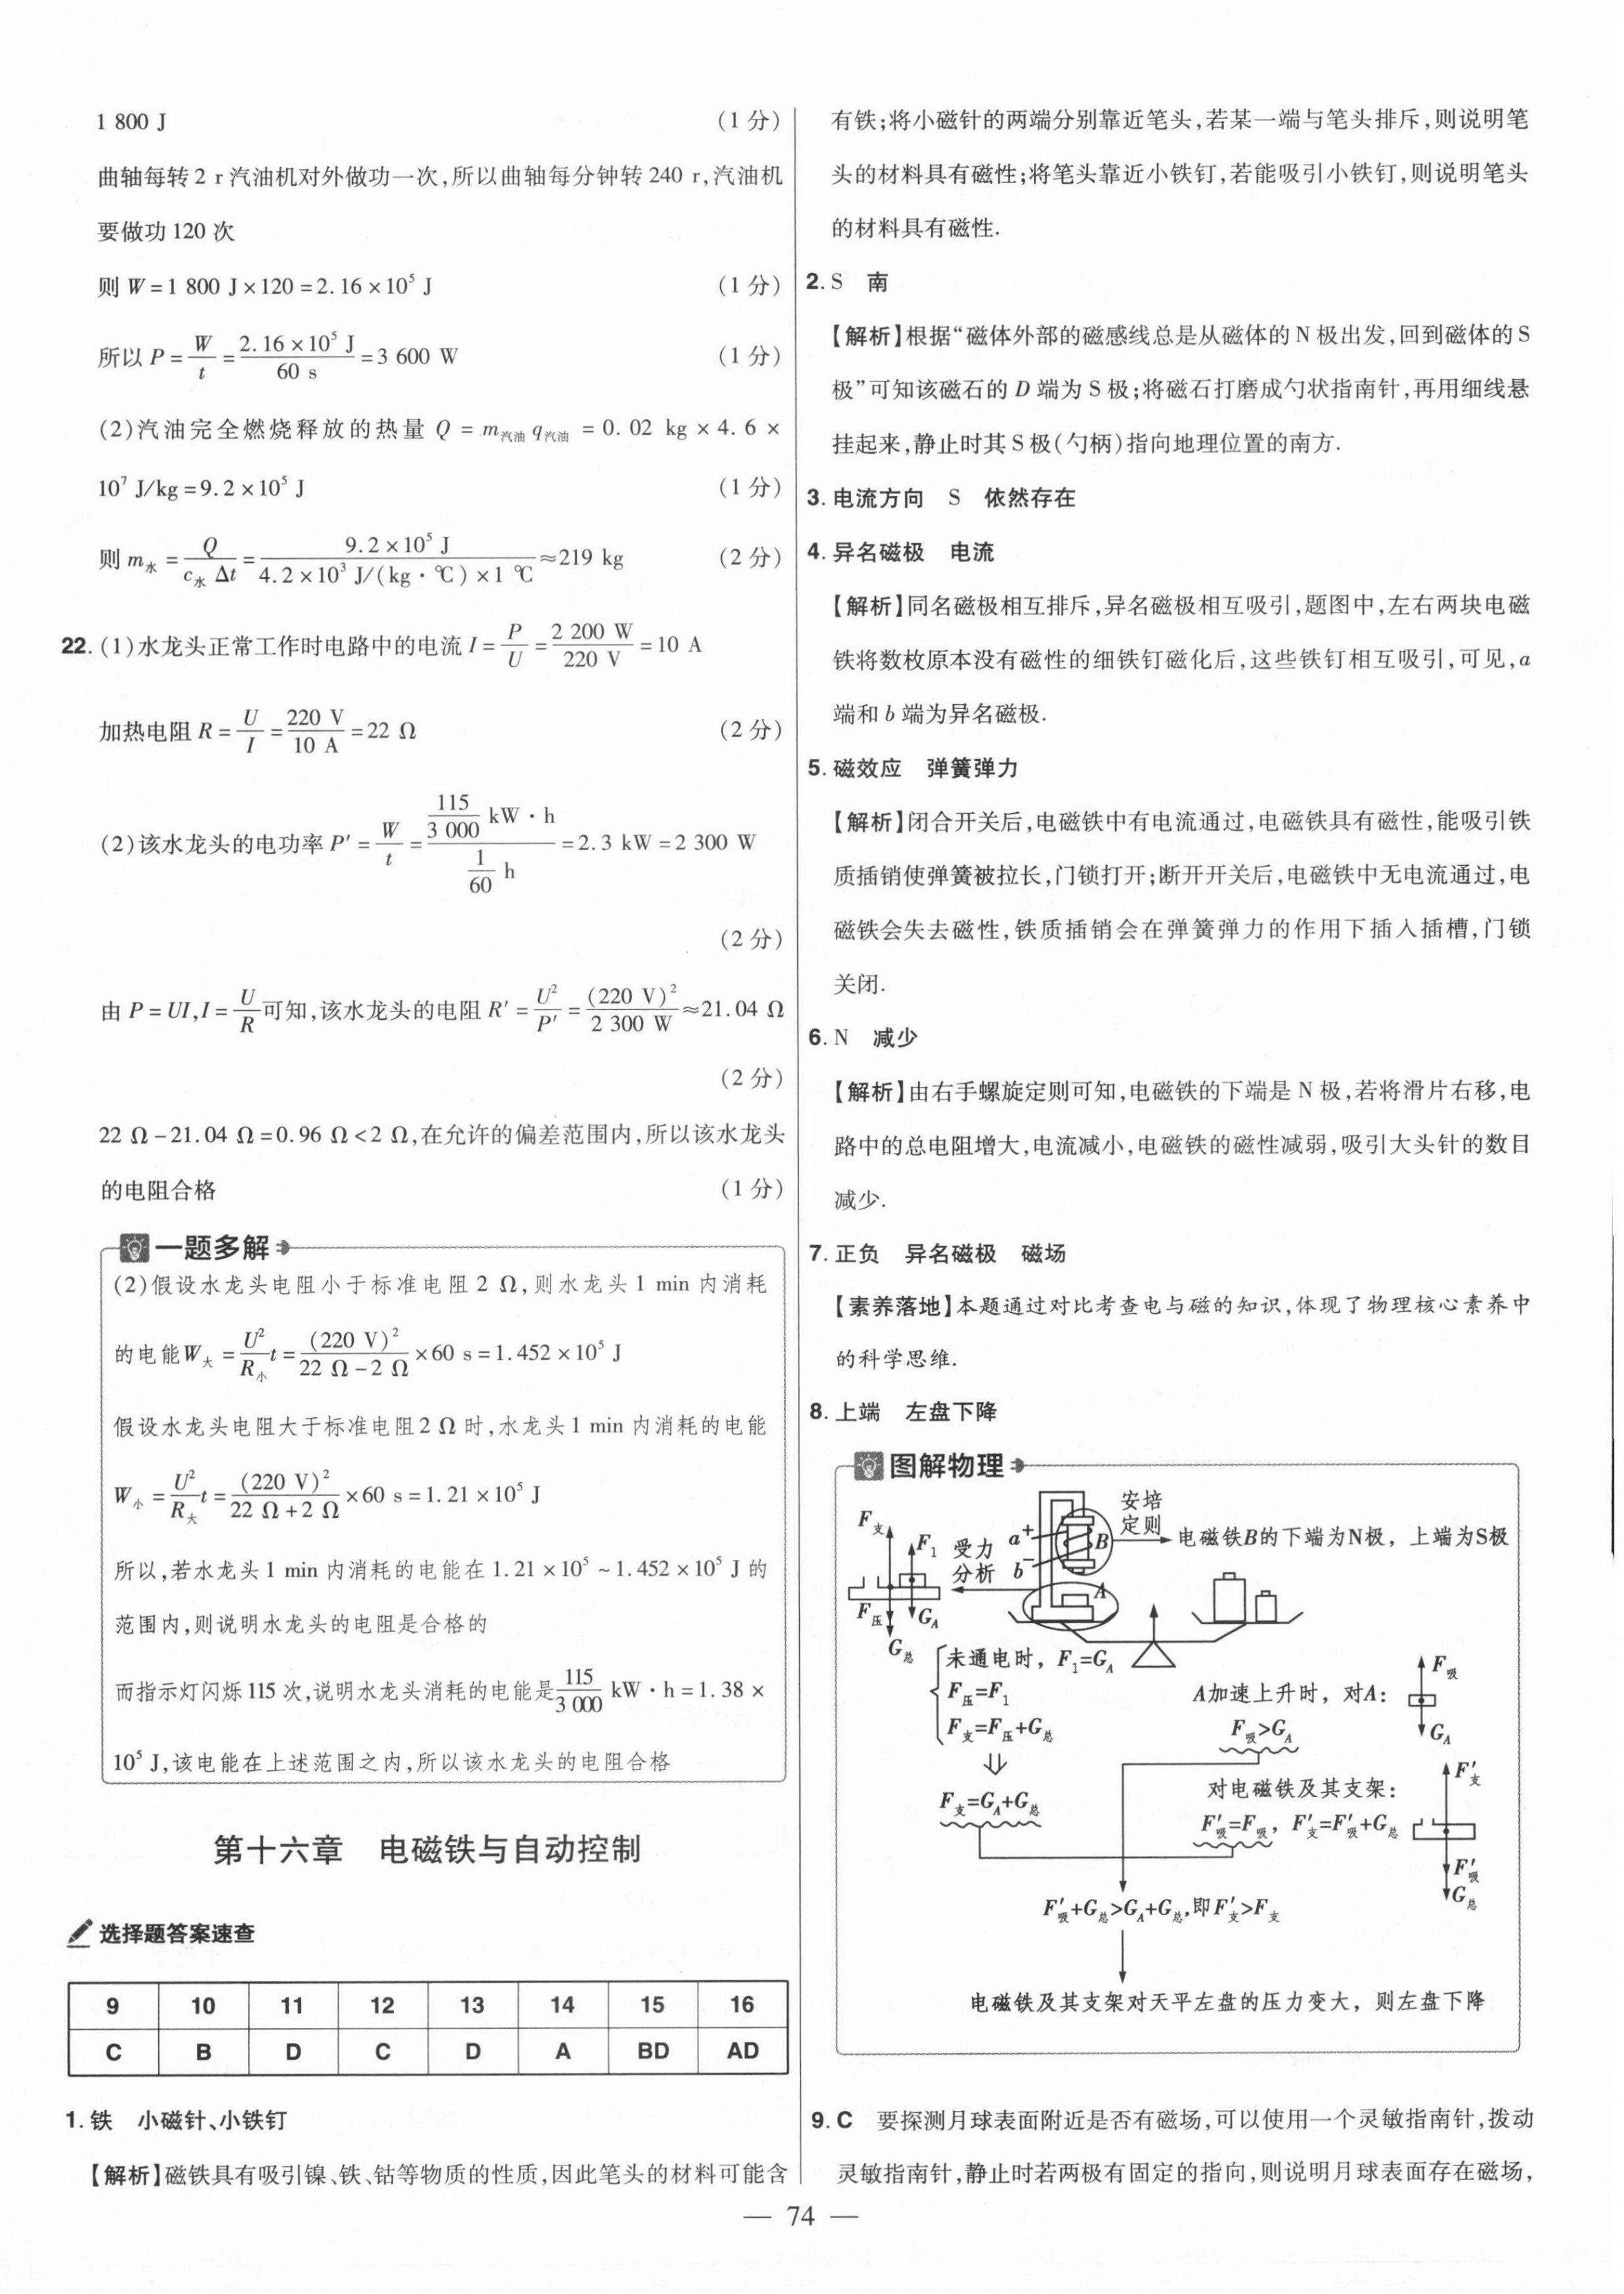 1 800 J (1分)
曲轴每转2 r汽油机对外做功一次,所以曲轴每分钟转240 r,汽油机
要做功120次
则W=1 800 J×120=2.16×10⁵ J (1分)
所以P=W/t=2.16×10⁵ J/60 s=3 600 W (1分)
(2)汽油完全燃烧释放的热量Q=m汽油q汽油=0.02 kg×4.6×
10⁷ J/kg=9.2×10⁵ J (1分)
则m水=Q/(c水Δt)=9.2×10⁵ J/(4.2×10³ J/(kg·℃)×1 ℃)≈219 kg (2分)
22.(1)水龙头正常工作时电路中的电流I=P/U=2 200 W/220 V=10 A
加热电阻R=U/I=220 V/10 A=22 Ω (2分)
(2)该水龙头的电功率P′=W/t=(115/3 000 kW·h)/(1/60 h)=2.3 kW=2 300 W
(2分)
由P=UI,I=U/R可知,该水龙头的电阻R′=U²/P′=(220 V)²/2 300 W≈21.04 Ω
(2分)
22 Ω-21.04 Ω=0.96 Ω<2 Ω,在允许的偏差范围内,所以该水龙头
的电阻合格 (1分)
一题多解
(2)假设水龙头电阻小于标准电阻2 Ω,则水龙头1 min内消耗
的电能W大=U²/R小 t=(220 V)²/(22 Ω-2 Ω)×60 s=1.452×10⁵ J
假设水龙头电阻大于标准电阻2 Ω时,水龙头1 min内消耗的电能
W小=U²/R大 t=(220 V)²/(22 Ω+2 Ω)×60 s=1.21×10⁵ J
所以,若水龙头1 min内消耗的电能在1.21×10⁵~1.452×10⁵ J的
范围内,则说明水龙头的电阻是合格的
而指示灯闪烁115次,说明水龙头消耗的电能是115/3 000 kW·h=1.38×
10⁵ J,该电能在上述范围之内,所以该水龙头的电阻合格
第十六章 电磁铁与自动控制
选择题答案速查
9 10 11 12 13 14 15 16
C B D C D A BD AD
1.铁 小磁针、小铁钉
【解析】磁铁具有吸引镍、铁、钴等物质的性质,因此笔头的材料可能含
有铁;将小磁针的两端分别靠近笔头,若某一端与笔头排斥,则说明笔
头的材料具有磁性;将笔头靠近小铁钉,若能吸引小铁钉,则说明笔头
的材料具有磁性.
2.S 南
【解析】根据“磁体外部的磁感线总是从磁体的N极出发,回到磁体的S
极”可知该磁石的D端为S极;将磁石打磨成勺状指南针,再用细线悬
挂起来,静止时其S极(勺柄)指向地理位置的南方.
3.电流方向 S 依然存在
4.异名磁极 电流
【解析】同名磁极相互排斥,异名磁极相互吸引,题图中,左右两块电磁
铁将数枚原本没有磁性的细铁钉磁化后,这些铁钉相互吸引,可见,a
端和b端为异名磁极.
5.磁效应 弹簧弹力
【解析】闭合开关后,电磁铁中有电流通过,电磁铁具有磁性,能吸引铁
质插销使弹簧被拉长,门锁打开;断开开关后,电磁铁中无电流通过,电
磁铁会失去磁性,铁质插销会在弹簧弹力的作用下插入插槽,门锁
关闭.
6.N 减少
【解析】由右手螺旋定则可知,电磁铁的下端是N极,若将滑片右移,电
路中的总电阻增大,电流减小,电磁铁的磁性减弱,吸引大头针的数目
减少.
7.正负 异名磁极 磁场
【素养落地】本题通过对比考查电与磁的知识,体现了物理核心素养中
的科学思维.
8.上端 左盘下降
图解物理
F支 F₁ F压 GA G总
受力
分析
a + b − B A
安培
定则
电磁铁B的下端为N极,上端为S极
未通电时,F₁=GA
F压=F₁
F支=F压+G总
F支=GA+G总
A加速上升时,对A:
F吸>GA
F吸 GA
对电磁铁及其支架:
F′吸=F吸,F′支=F′吸+G总
F′支 F′吸 G总
F′吸+G总>GA+G总,即F′支>F支
电磁铁及其支架对天平左盘的压力变大,则左盘下降
9.C 要探测月球表面附近是否有磁场,可以使用一个灵敏指南针,拨动
灵敏指南针,静止时若两极有固定的指向,则说明月球表面存在磁场,
— 74 —